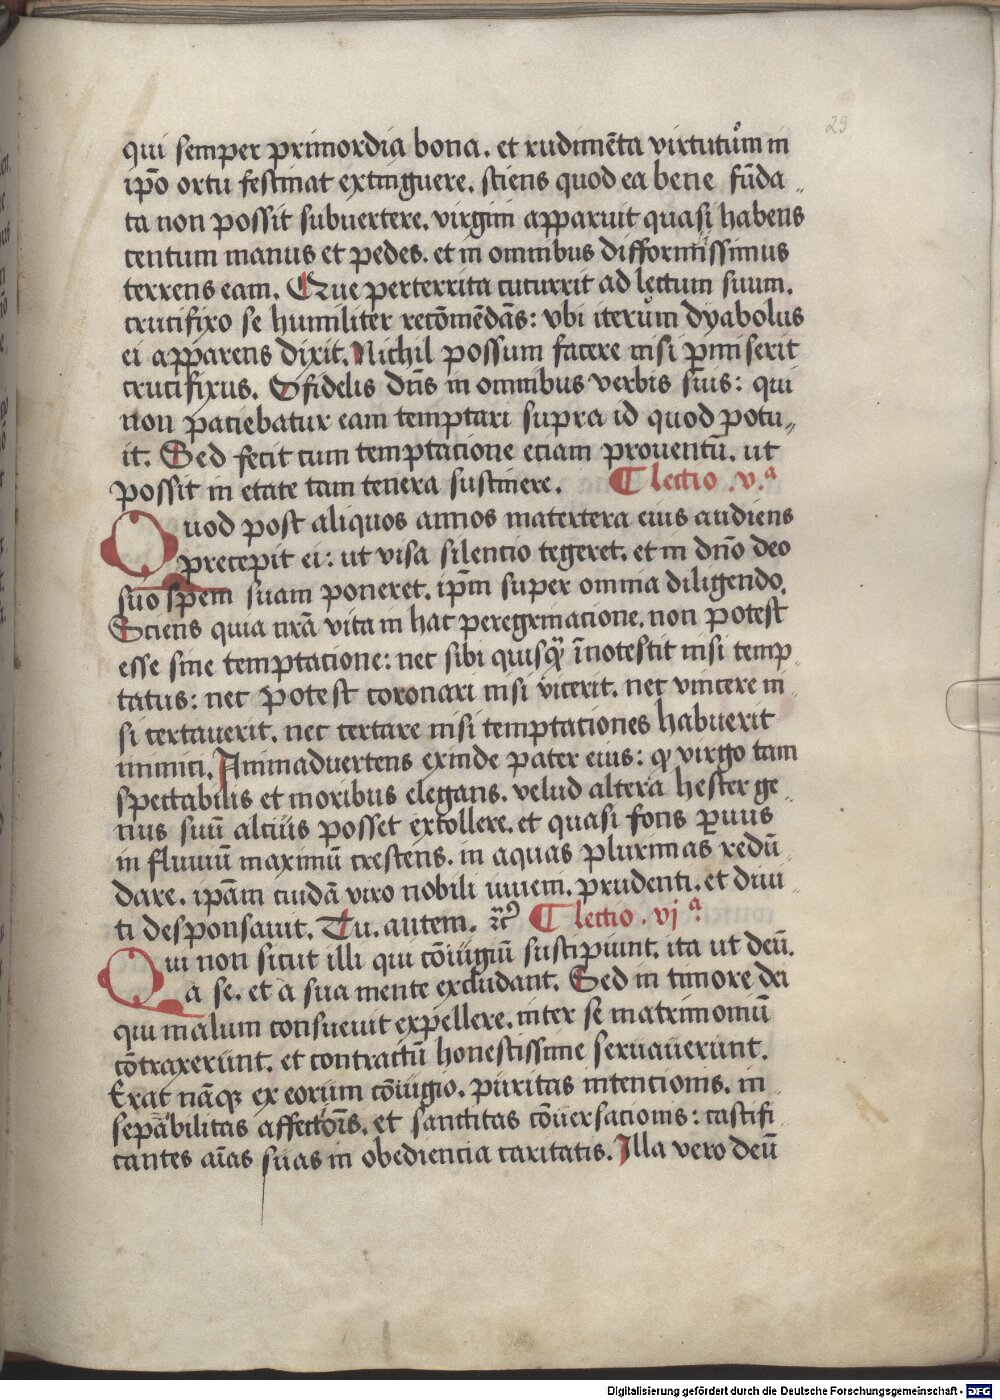 29
qui semper primordia bona. et rudimēta virtutum in
ip̄o ortu festinat extinguere. sciens quod ea bene fūda„
ta non possit subuertere. virgini apparuit quasi habens
centum manus et pedes. et in omnibus difformissimus
terrens eam. Que perterrita cucurrit ad lectum suum.
crucifixo se humiliter recōmēdās: vbi iterum dyabolus
ei apparens dixit. Nichil possum facere nisi p̄miserit
crucifixus. O fidelis dn̄s in omnibus verbis suis: qui
non paciebatur eam temptari supra id quod potu„
it. Sed fecit cum temptacione eciam prouentū. ut
possit in etate tam tenera sustinere. ¶ lectio .v.ª
Quod post aliquos annos matertera eius audiens
precepit ei: ut visa silencio tegeret. et in dn̄o deo
suo spem suam poneret. ip̄m super omnia diligendo.
Sciens quia nr̄a vita in hac peregrinacione. non potest
esse sine temptacione: nec sibi quisqꝫ īnotescit nisi temp„
tatus: nec potest coronari nisi vicerit. nec vincere ni„
si certauerit. nec certare nisi temptaciones habuerit
inimici. Animaduertens exinde pater eius: ꝙ virgo tam
spectabilis et moribus elegans. velud altera hester ge„
nus suū alcius posset extollere. et quasi fons p̄uus
in fluuiū maximū crescens. in aquas plurimas redū„
dare. ip̄am cuidā viro nobili iuueni. prudenti. et diui„
ti desponsauit. Tu. autem. ꝛc̄ ¶ lectio . vj ª.
Qui non sicut illi qui cōiugiū suscipiunt. ita ut deū.
a se. et a sua mente excludant. Sed in timore dei
qui malum consueuit expellere. inter se matrimoniū
cōtraxerunt. et contractū honestissime seruauerunt.
Erat nāqꝫ ex eorum cōiugio. puritas intencionis. in„
sepābilitas affectōis. et sanctitas cōuersacionis: castifi„
cantes aīas suas in obediencia caritatis. Illa vero deū
Digitalisierung gefördert durch die Deutsche Forschungsgemeinschaft - DFG